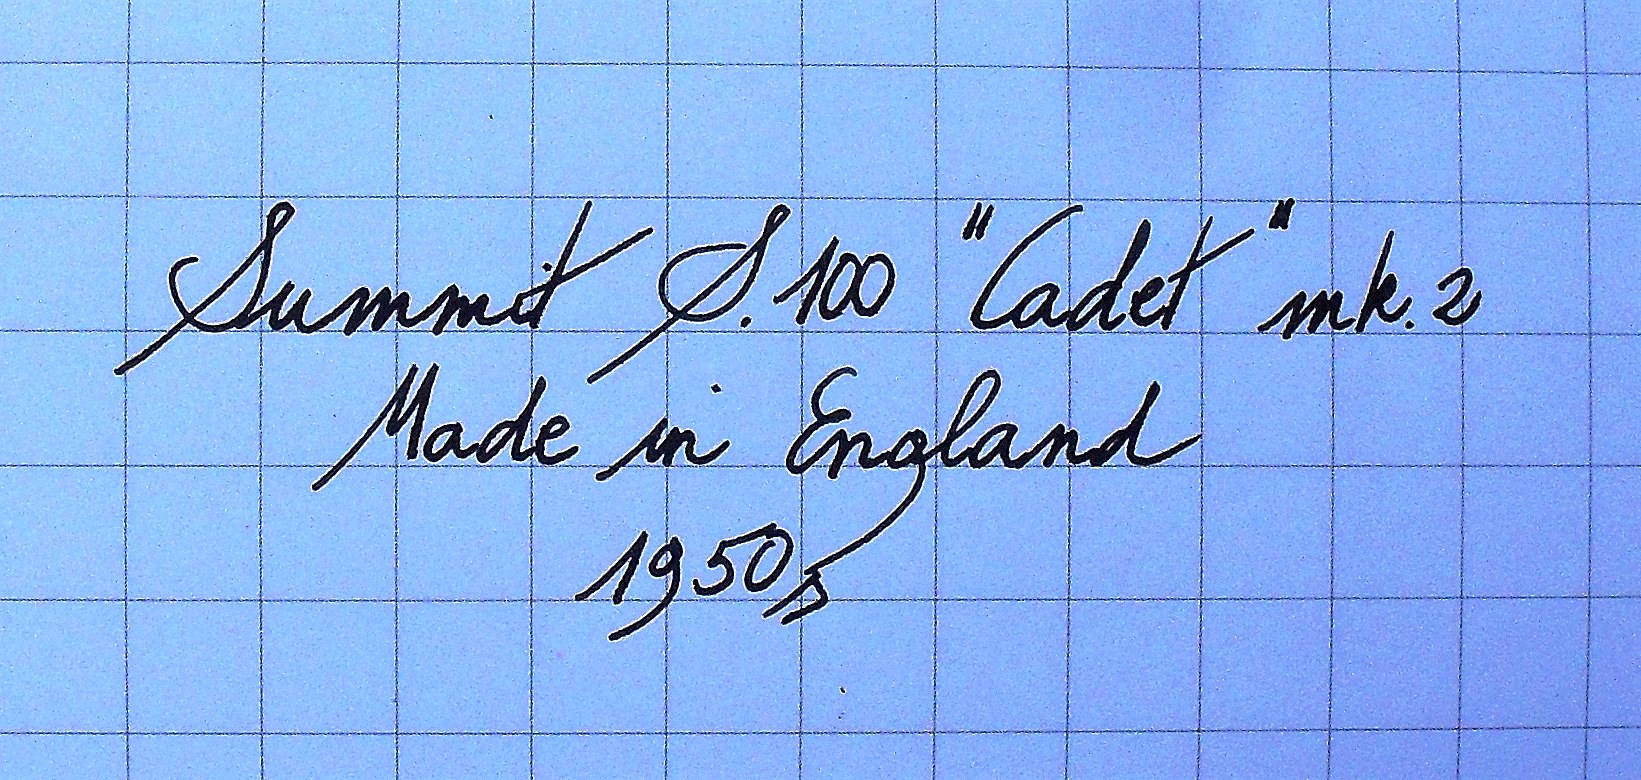 Summit S.100 "Cadet" mk.2
Made in England
1950s